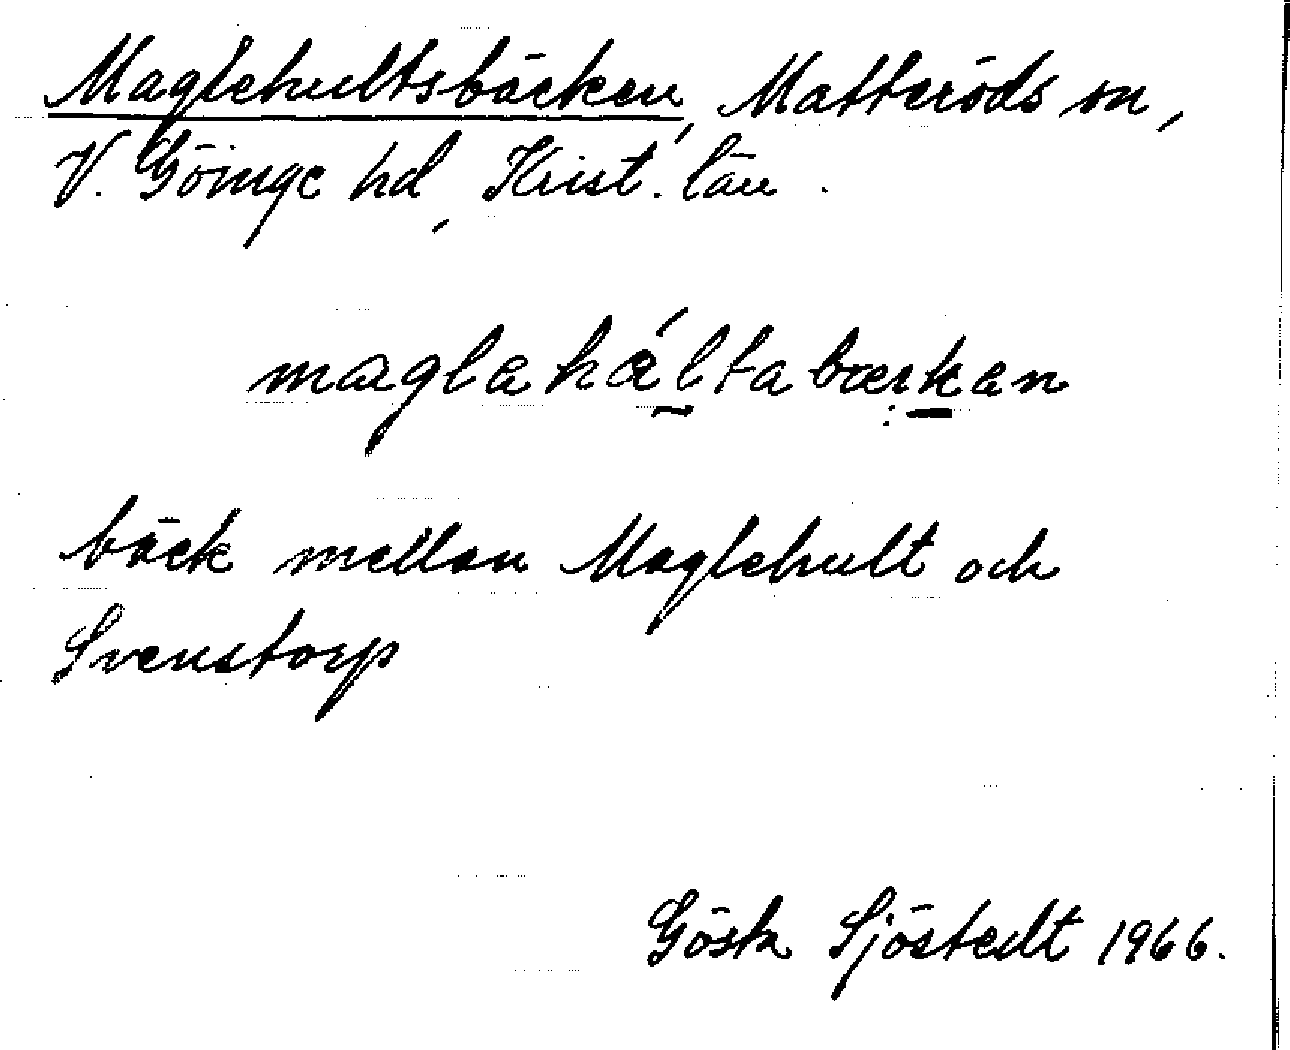 Maglehultsbäcken, Matteröds sn,
V. Göinge hd, Krist. län.
maglahǽltabækan
bäck mellan Maglehult och
Svenstorp
Gösta Sjöstedt 1966.